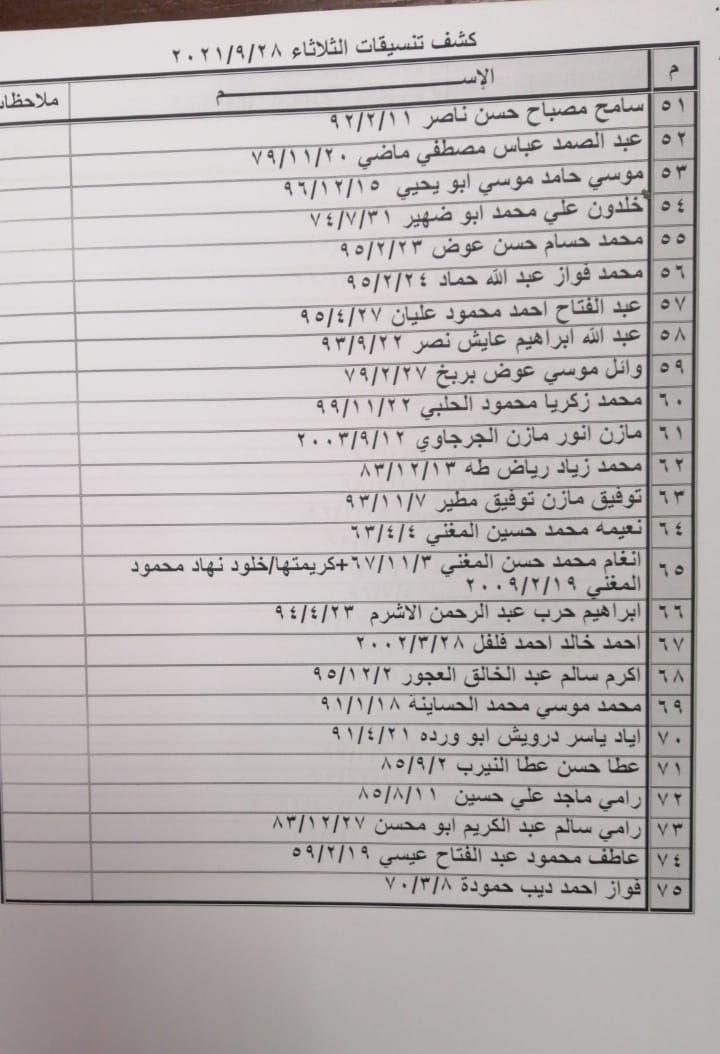 كشف تنسيقات الثلاثاء ٢٠٢١/٩/٢٨
م الإســـــــــــــــــــــــــم ملاحظات
٥١ سامح مصباح حسن ناصر ٩٢/٢/١١
٥٢ عبد الصمد عباس مصطفي ماضي ٧٩/١١/٢٠
٥٣ موسي حامد موسي ابو يحيي ٩٦/١٢/١٥
٥٤ خلدون علي محمد ابو ضهير ٧٤/٧/٣١
٥٥ محمد حسام حسن عوض ٩٥/٢/٢٣
٥٦ محمد فواز عبد الله حماد ٩٥/٢/٢٤
٥٧ عبد الفتاح احمد محمود عليان ٩٥/٤/٢٧
٥٨ عبد الله ابراهيم عايش نصر ٩٣/٩/٢٢
٥٩ وائل موسي عوض بربخ ٧٩/٢/٢٧
٦٠ محمد زكريا محمود الحلبي ٩٩/١١/٢٢
٦١ مازن انور مازن الجرجاوي ٢٠٠٣/٩/١٢
٦٢ محمد زياد رياض طه ٨٣/١٢/١٣
٦٣ توفيق مازن توفيق مطير ٩٣/١١/٧
٦٤ نعيمه محمد حسين المغني ٦٣/٤/٤
٦٥ انغام محمد حسن المغني ٦٧/١١/٣+كريمتها/خلود نهاد محمود
المغني ٢٠٠٩/٢/١٩
٦٦ ابراهيم حرب عبد الرحمن الاشرم ٩٤/٤/٢٣
٦٧ احمد خالد احمد فلفل ٢٠٠٢/٣/٢٨
٦٨ اكرم سالم عبد الخالق العجور ٩٥/١٢/٢
٦٩ محمد موسي محمد الحساينة ٩١/١/١٨
٧٠ اياد ياسر درويش ابو ورده ٩١/٤/٢١
٧١ عطا حسن عطا النيرب ٨٥/٩/٢
٧٢ رامي ماجد علي حسين ٨٥/٨/١١
٧٣ رامي سالم عبد الكريم ابو محسن ٨٣/١٢/٢٧
٧٤ عاطف محمود عبد الفتاح عيسي ٥٩/٢/١٩
٧٥ فواز احمد ديب حمودة ٧٠/٣/٨